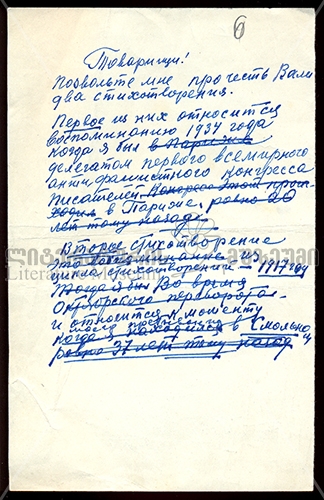 6
Товарищи!
Позвольте мне прочесть Вам
два стихотворения.
Первое из них относится
воспоминанию 1937 года
когда я был в Париже
делегатом первого всемирного
антифашистского конгресса
писателей Конгресс этот проис-
ходил в Париже, ровно 20
лет тому назад.
Второе стихотворение
это воспоминание из
цикла стихотворений – 1917 год
Когда я был во время
Октябрьского переворота
и относится к моменту
когда я находился в Смольном
ровно 37 лет тому назад
Literature Museum